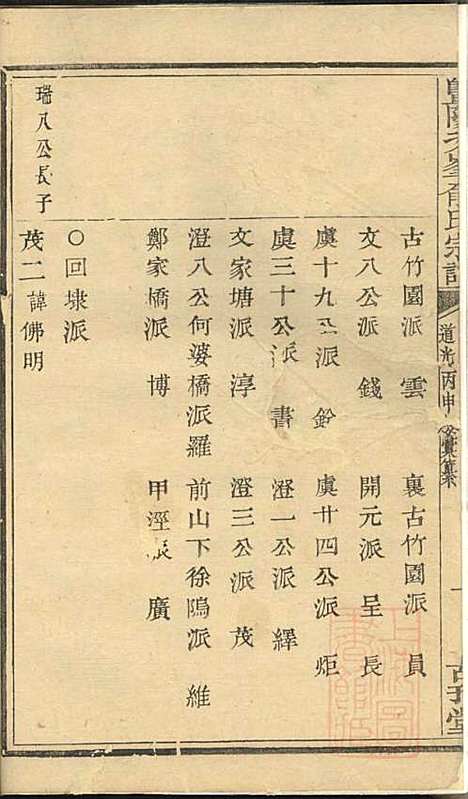 宗譜
道光丙申
古竹園派 雲 裏古竹園派 員
文八公派 錢 開元派 呈 長
虞十九公派 鈐 虞廿四公派 炬
虞三十公派 書 澄一公派 繹
文家塘派 淳 澄三公派 茂
澄八公何婆橋派 羅 前山下徐鴿派 維
鄭家橋派 博 甲涇派 廣
〇回埭派
瑞八公長子 茂二 諱佛明